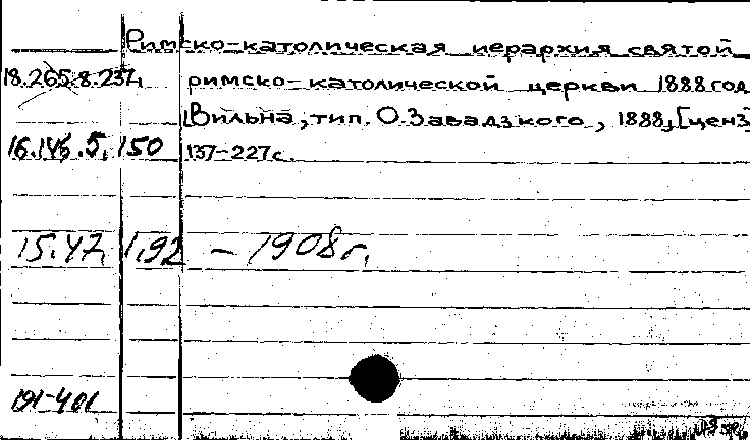 Римско-католическая иерархия святой
18.265.8.237, римско-католической церкви 1888 год
[Вильна, тип. О. Завадзкого, 1888, [ценз
16.146.5.150 137-227 с.
15.47.1.92 - 1908 г.
191-401